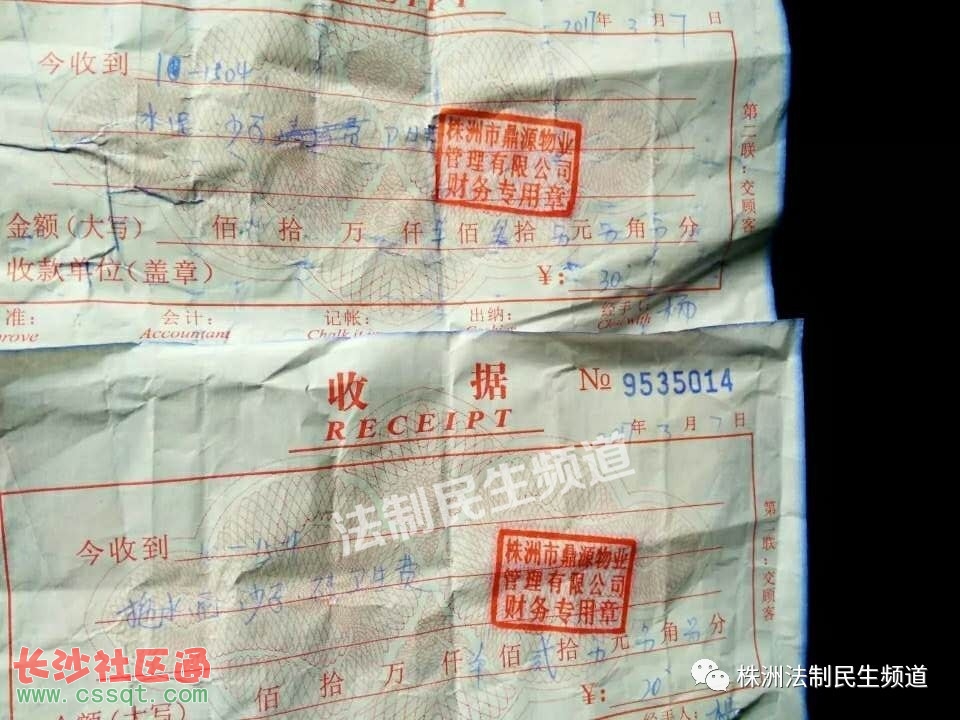 RECEIPT
2017年 3 月 7 日
今收到 10-1504
水泥 沙子 费
第二联：交顾客
株洲市鼎源物业
管理有限公司
财务专用章
金额（大写） 佰 拾 万 仟 佰 拾 元 角 分
收款单位（盖章） ￥： 30
准： 会计： 记帐： 出纳： 经手人： 杨
rove Accountant Chalk it
收 据 № 9535014
RECEIPT
年 3 月 7 日
法制民生频道
今收到
第二联：交顾客
株洲市鼎源物业
管理有限公司
财务专用章
拖水泥 沙子 卫生费
佰 拾 万 仟 佰 贰 拾 元 角 分
金额（大写） ￥： 20
经手人： 杨
长沙社区通
www.cssqt.com
株洲法制民生频道